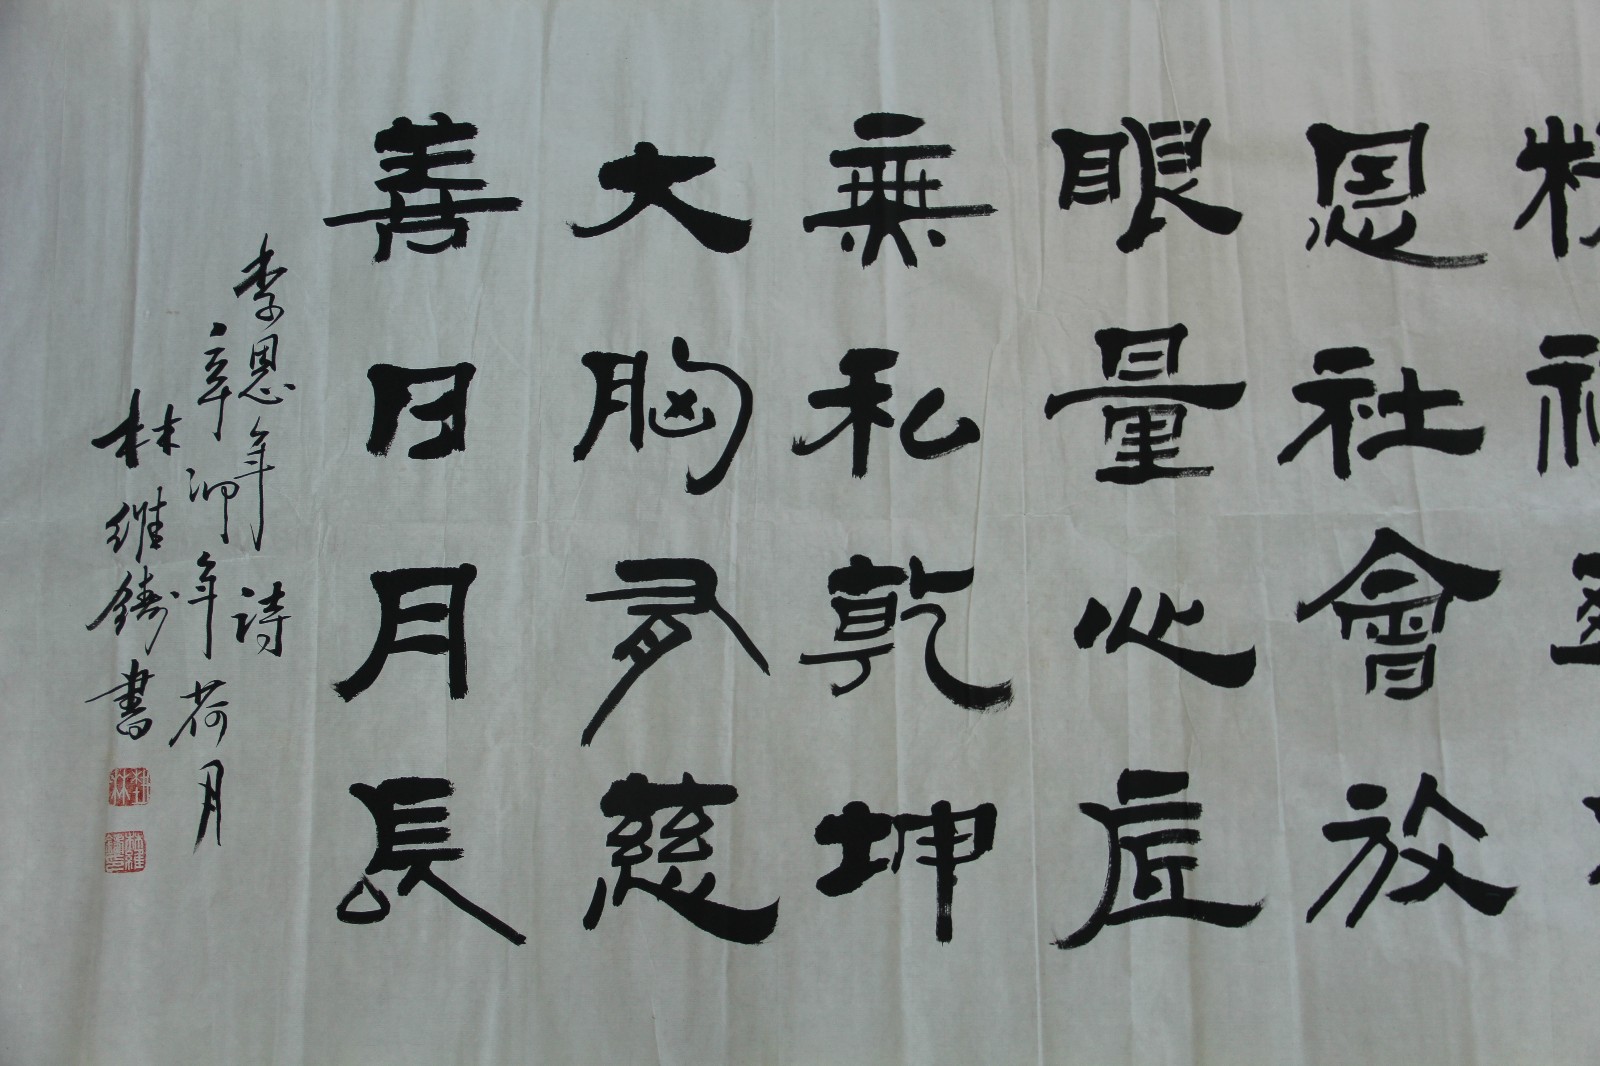 恩社會放
眼量心底
無私乾坤
大胸有慈
善日月長
李恩年詩
辛卯年荷月
林維鑄書